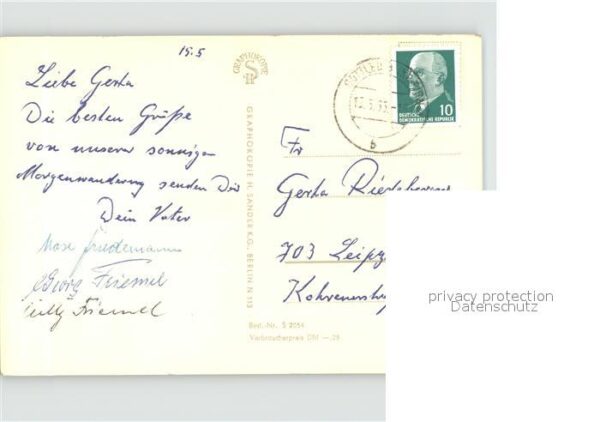 15.5
Liebe Gerta
Die besten Grüße
von unserer sonnigen
Morgenwanderung senden Dir
Dein Vater
Friedemann
Georg Friemel
Willy Friemel
GRAPHOKOPIE
H S
GRAPHOKOPIE H. SANDER K.G., BERLIN N 113
Best.-Nr. S 2054
Verbraucherpreis DM -,25
10
DEUTSCHE
DEMOKRATISCHE REPUBLIK
b
Fr
Gerta
703 Leipz
privacy protection
Datenschutz